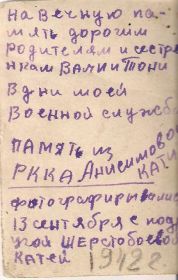 на вечную па-
мять дорогим
родителям и сестре
нкам Вали и Тони
в дни моей
Военной службы
ПАМЯТЬ из
РККА Анисимовой
КАТИ
фотографировались
13 сентября с подр
угой Шерстобоевой
Катей 1942 г.